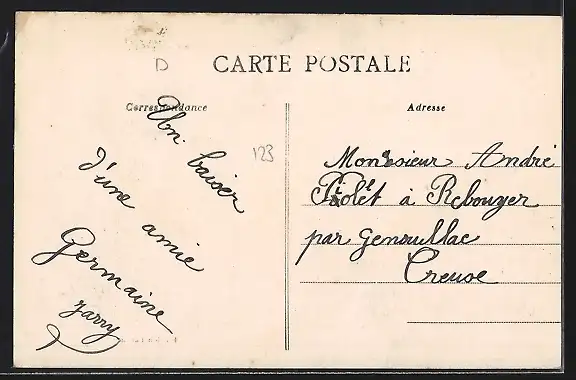 D
CARTE POSTALE
Correspondance
Adresse
Un baiser
d'une amie
Germaine
Jarry
123
Monsieur André
à Rebouyer
par Genouillac
Creuse